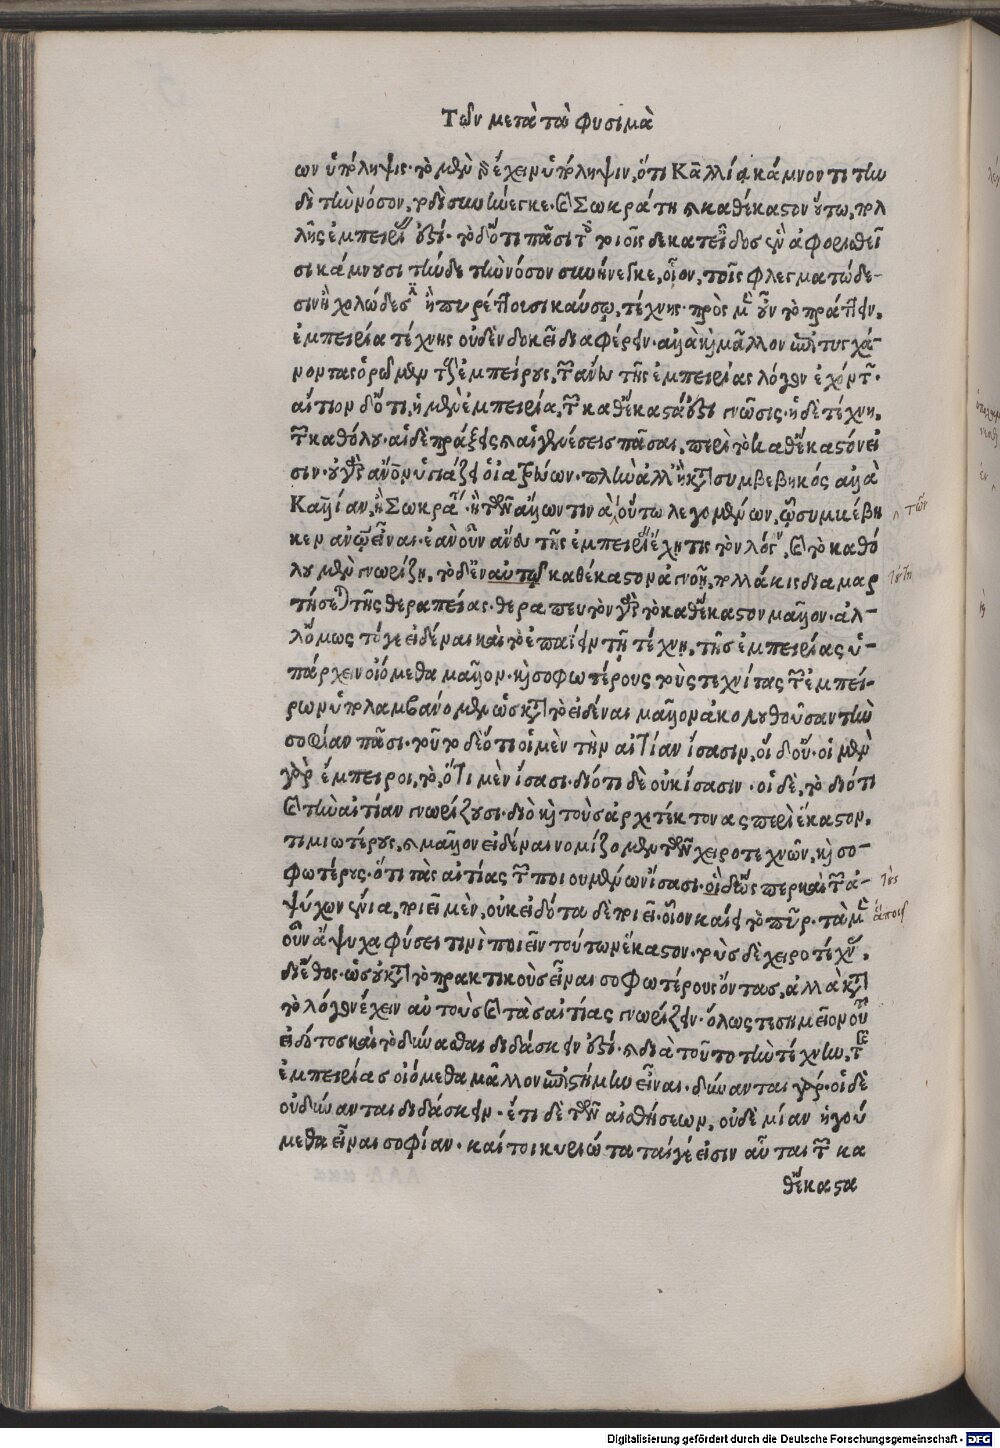 Τῶν μετὰ τὰ φυσικὰ
ων ὑπόληψις. τὸ μὲν γὰρ ἔχειν ὑπόληψιν, ὅτι Καλλίᾳ κάμνοντι τὴν
δὲ τὴν νόσον, τοδὶ συνήνεγκε. καὶ Σωκράτη καὶ καθέκαστον οὕτω, πολ
λῆς ἐμπειρίας ἐστί. τὸ δ' ὅτι πᾶσι τοῖς τοιοῖσδε κατ' εἶδος ἓν ἀφορισθεῖ
σι κάμνουσι τήνδε τὴν νόσον συνήνεγκε, οἷον, τοῖς φλεγματώδε-
σιν ἢ χολώδεσι ἢ πυρέττουσι καύσῳ, τέχνης. πρὸς μὲν οὖν τὸ πράττειν,
ἐμπειρία τέχνης οὐδὲν δοκεῖ διαφέρειν. ἀλλὰ καὶ μᾶλλον ἐπιτυγχά-
νοντας ὁρῶμεν τοὺς ἐμπείρους, τῶν ἄνευ τῆς ἐμπειρίας λόγον ἐχόντων.
αἴτιον δ' ὅτι, ἡ μὲν ἐμπειρία, τῶν καθ' ἕκαστά ἐστι γνῶσις. ἡ δὲ τέχνη,
τῶν καθόλου. αἱ δὲ πράξεις καὶ αἱ γενέσεις πᾶσαι, περὶ τὸ καθ' ἕκαστόν εἰ
σιν. οὐ γὰρ ἄνθρωπον ὑγιάζει ὁ ἰατρεύων. πλὴν ἀλλ' ἢ κατὰ συμβεβηκός ἀλλὰ
Καλλίαν, ἢ Σωκράτην. ἢ τῶν ἄλλων τινὰ οὕτω λεγομένων, ᾧ συμβέβη
κεν ἀνθρώπῳ εἶναι. ἐὰν οὖν ἄνευ τῆς ἐμπειρίας ἔχῃ τις τὸν λόγον, καὶ τὸ καθό
λου μὲν γνωρίζῃ, τὸ δ' ἐν αὐτῷ καθέκαστον ἀγνοῇ, πολλάκις διαμαρ
τήσεται τῆς θεραπείας. θεραπευτὸν γὰρ τὸ καθ' ἕκαστον μᾶλλον. ἀλ-
λ' ὅμως τό γε εἰδέναι καὶ τὸ ἐπαΐειν τῇ τέχνῃ, τῆς ἐμπειρίας ὑ-
πάρχειν οἰόμεθα μᾶλλον. καὶ σοφωτέρους τοὺς τεχνίτας τῶν ἐμπεί-
ρων ὑπολαμβάνομεν ὡς κατὰ τὸ εἰδέναι μᾶλλον ἀκολουθοῦσαν τὴν
σοφίαν πᾶσι. τοῦτο δὲ ὅτι οἱ μὲν τὴν αἰτίαν ἴσασιν, οἱ δ' οὔ. οἱ μὲν
γὰρ ἔμπειροι, τὸ, ὅτι μὲν ἴσασι. διότι δὲ οὐκ ἴσασιν. οἱ δὲ, τὸ διότι
καὶ τὴν αἰτίαν γνωρίζουσι. διὸ καὶ τοὺς ἀρχιτέκτονας περὶ ἕκαστον,
τιμιωτέρους, καὶ μᾶλλον εἰδέναι νομίζομεν τῶν χειροτεχνῶν, καὶ σο-
φωτέρους. ὅτι τὰς αἰτίας τῶν ποιουμένων ἴσασι. οἱ δ' ὥσπερ καὶ τῶν ἀ-
ψύχων ἔνια, ποιεῖ μὲν, οὐκ εἰδότα δὲ ποιεῖ. οἷον καίει τὸ πῦρ. τὰ μὲν
οὖν ἄψυχα φύσει τινὶ ποιεῖν τούτων ἕκαστον. τοὺς δὲ χειροτέχνας,
δι' ἔθος. ὡς οὐ κατὰ τὸ πρακτικοὺς εἶναι σοφωτέρους ὄντας, ἀλλὰ κατὰ
τὸ λόγον ἔχειν αὐτοὺς καὶ τὰς αἰτίας γνωρίζειν. ὅλως τε σημεῖον τοῦ
εἰδότος καὶ τὸ δύνασθαι διδάσκειν ἐστί. καὶ διὰ τοῦτο τὴν τέχνην, τῆς
ἐμπειρίας οἰόμεθα μᾶλλον ἐπιστήμην εἶναι. δύνανται γάρ. οἱ δὲ
οὐ δύνανται διδάσκειν. ἔτι δὲ τῶν αἰσθήσεων, οὐδὲ μίαν ἡγού
μεθα εἶναι σοφίαν. καίτοι κυριώταταί γέ εἰσιν αὗται τῶν κα
θ' ἕκαστα
τῶν
Digitalisierung gefördert durch die Deutsche Forschungsgemeinschaft - DFG